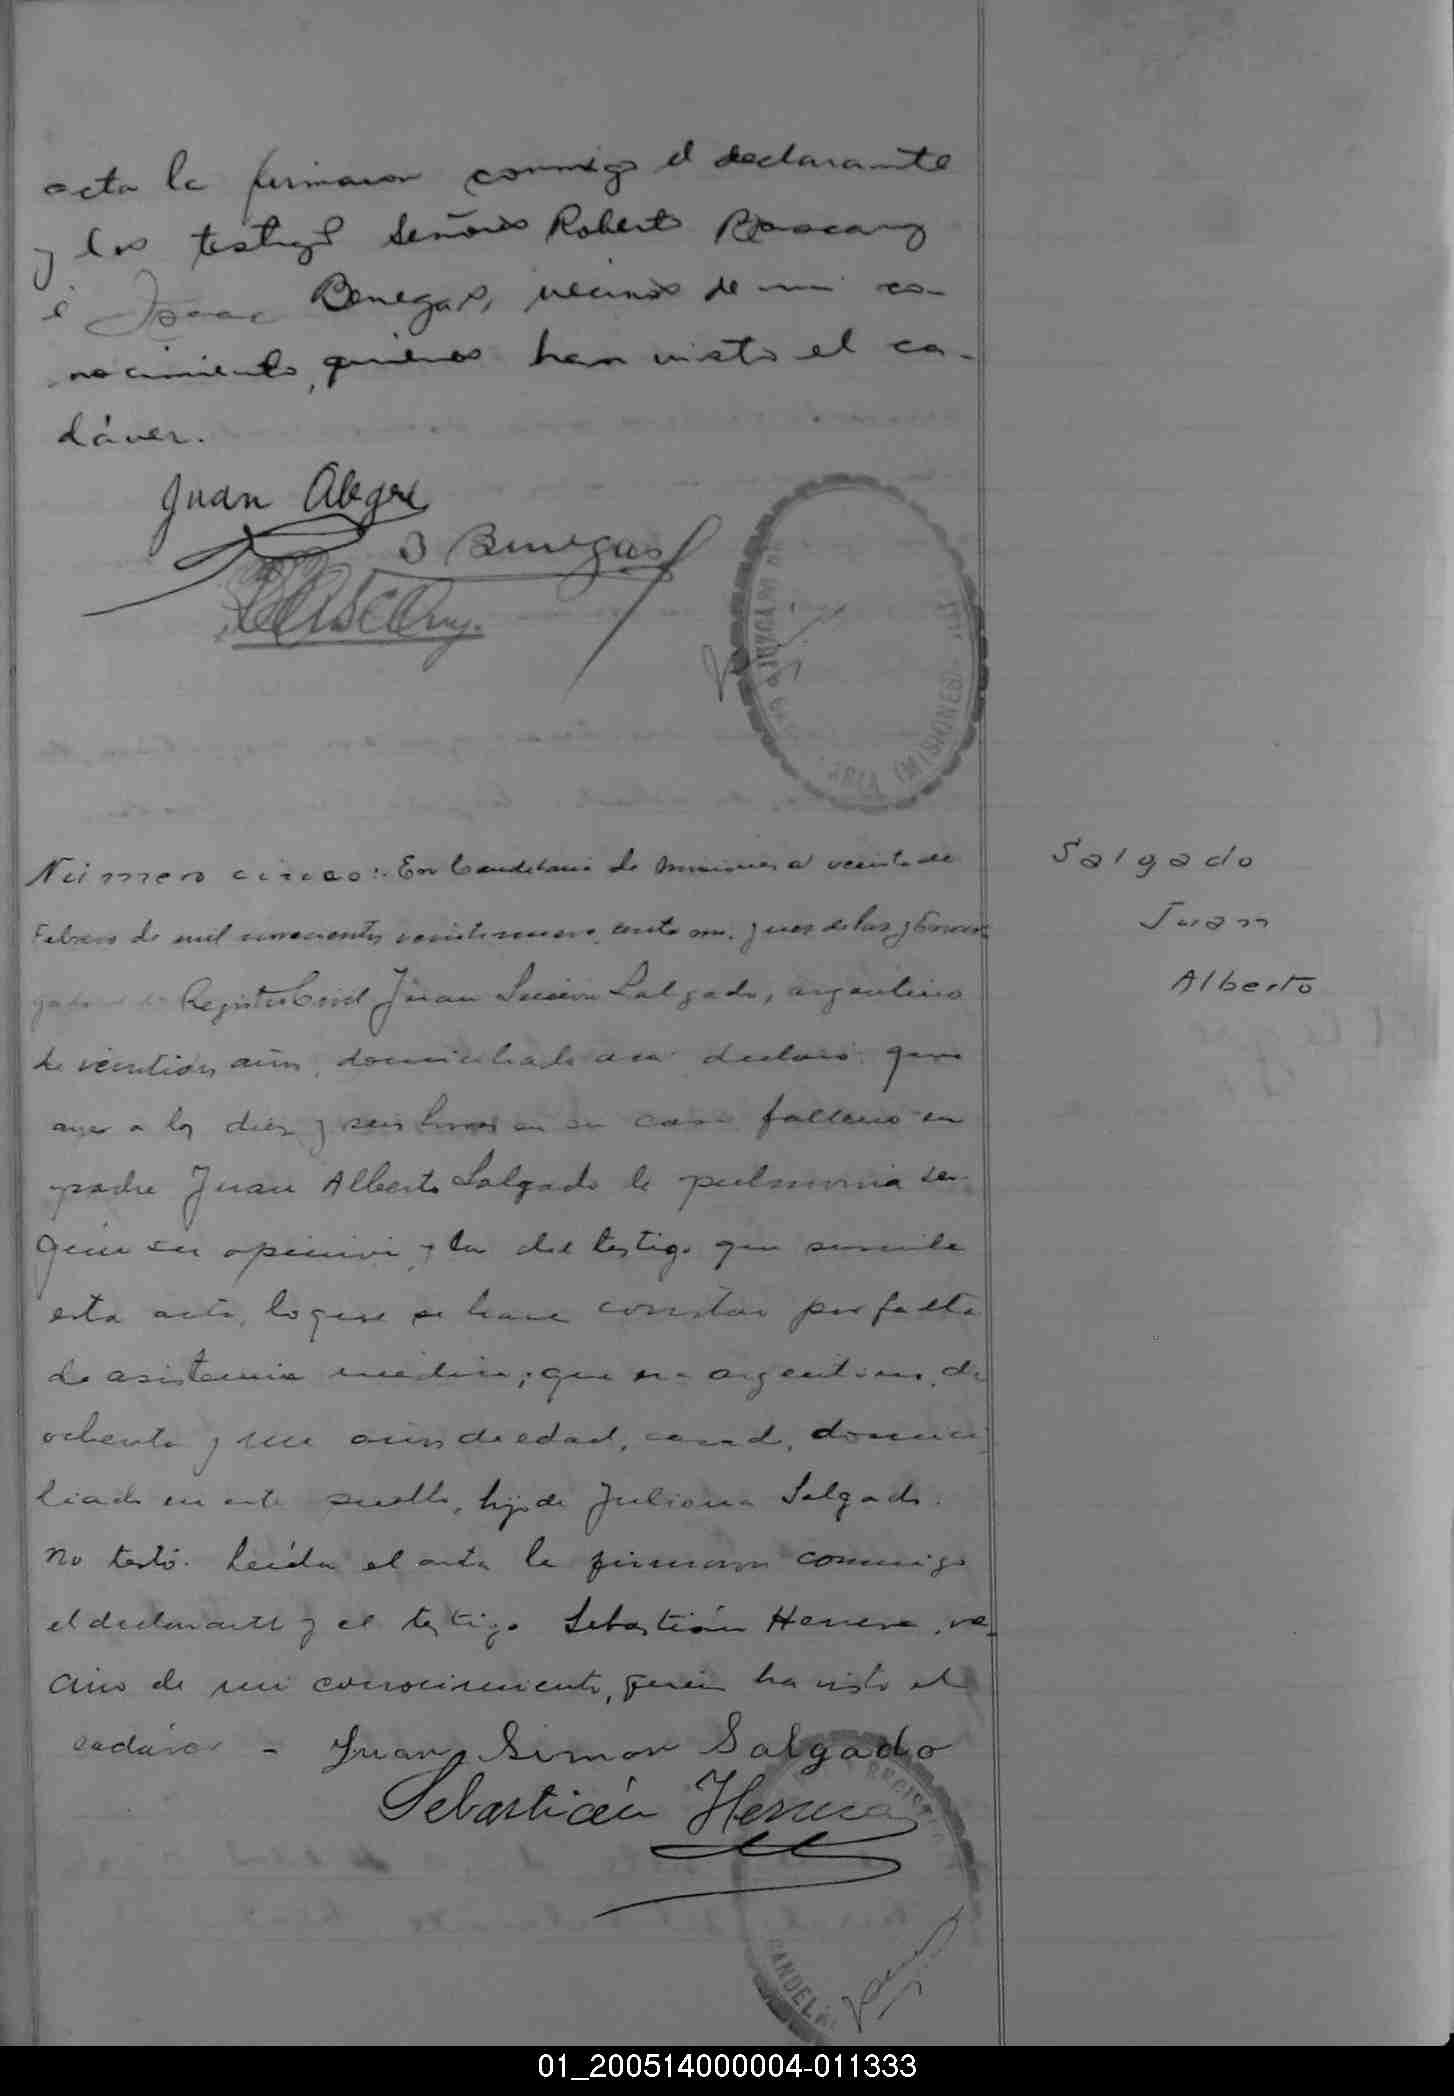 acta la firmaron conmigo el declarante
y los testigos Señores Roberto Bascary
é Isaac Benegas, vecinos de mi co-
nocimiento, quienes han visto el ca-
dáver.
Juan Alegre
I Benegas
RBascary.
JUZGADO DE
CANDELARIA (MISIONES)
Número cinco: En Candelaria de Misiones a veinte de
Febrero de mil novecientos veintinueve, ante mi, Juez de Paz y Encar-
gado del Registro Civil Juan Simón Salgado, argentino
de veintidos años, domiciliado acá declaró: que
ayer a las diez y seis horas en su casa falleció su
padre Juan Alberto Salgado de pulmonía se-
gún su opinión y la del testigo que suscribe
esta acta, lo que se hace constar por falta
de asistencia médica; que era argentino, de
ochenta y un años de edad, casado, domici-
liado en este pueblo, hijo de Juliana Salgado.
No testó. Leída el acta la firmaron conmigo
el declarante y el testigo Sebastián Herrera, ve-
cino de mi conocimiento, quien ha visto el
cadáver -
Juan Simon Salgado
Sebastián Herrera
REGISTRO
CANDELA
Salgado
Juan
Alberto
01_200514000004-011333